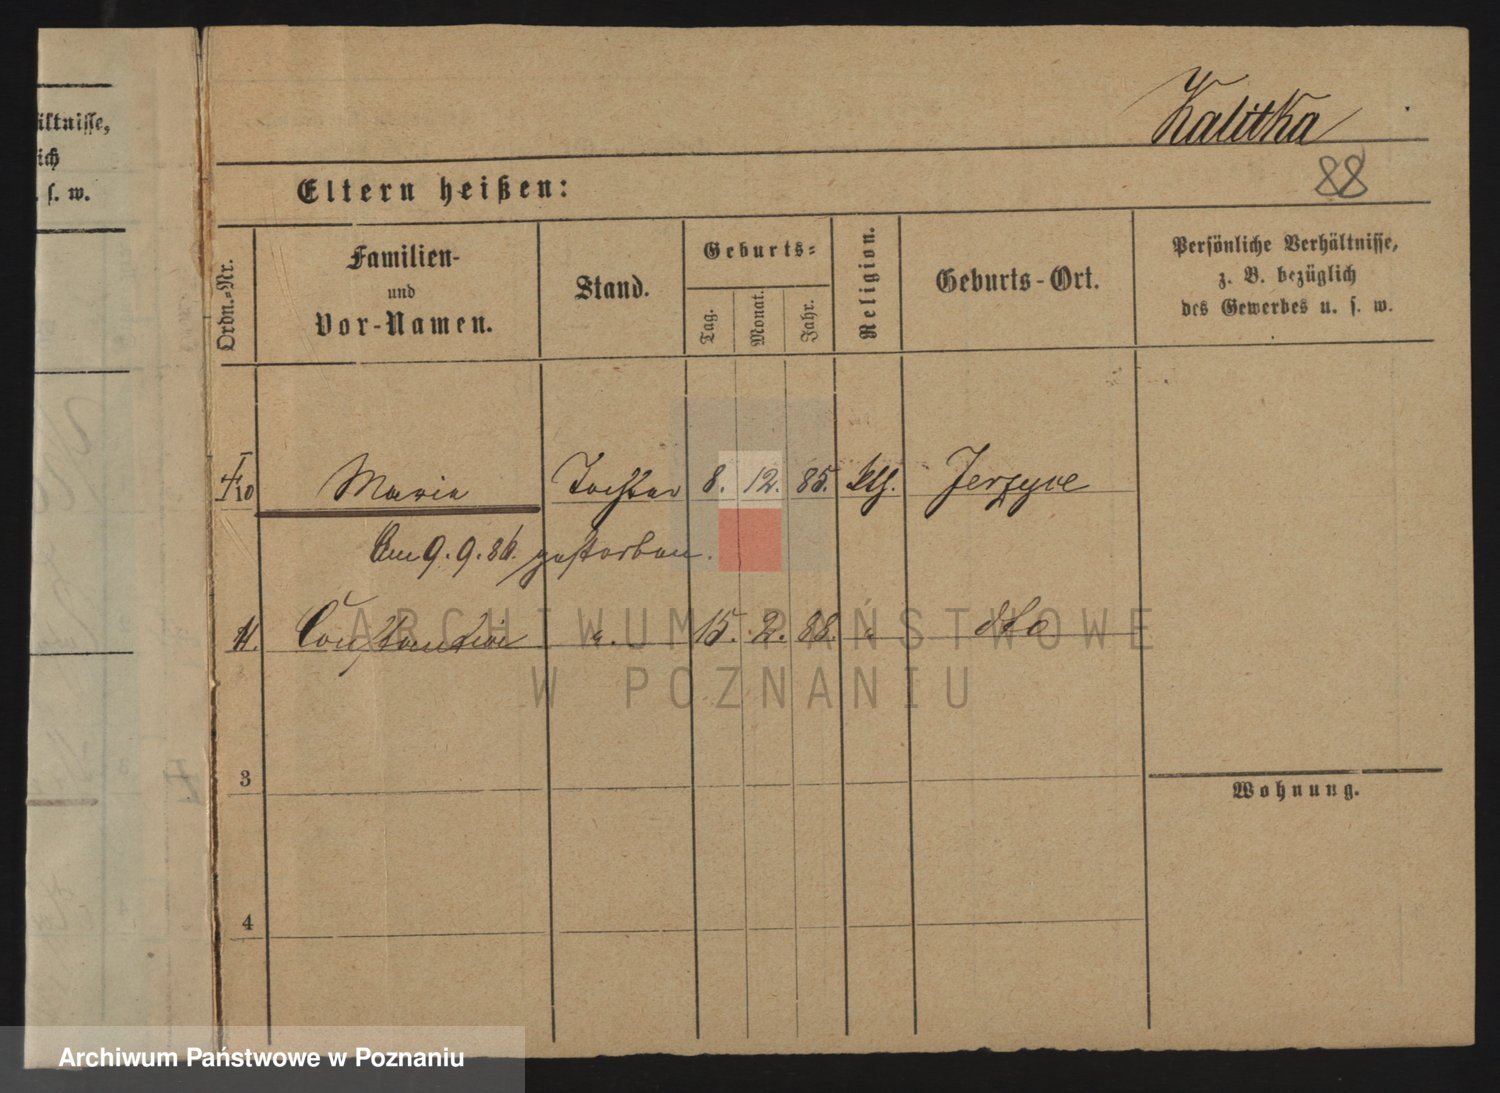 Kalitka
88
Eltern heißen:
Ordn.-Nr.
Familien-
und
Vor-Namen.
Stand.
Geburts-
Tag.
Monat.
Jahr.
Religion.
Geburts-Ort.
Persönliche Verhältnisse,
z. B. bezüglich
des Gewerbes u. s. w.
10 Marie Tochter 8. 12. 85. kth. Jerzyce
Am 9. 9. 86. gestorben.
11. Constantine ". 15. 2. 88. " dto
3
4
Wohnung.
ältnisse,
ich
. s. w.
ARCHIWUM PAŃSTWOWE
W POZNANIU
Archiwum Państwowe w Poznaniu